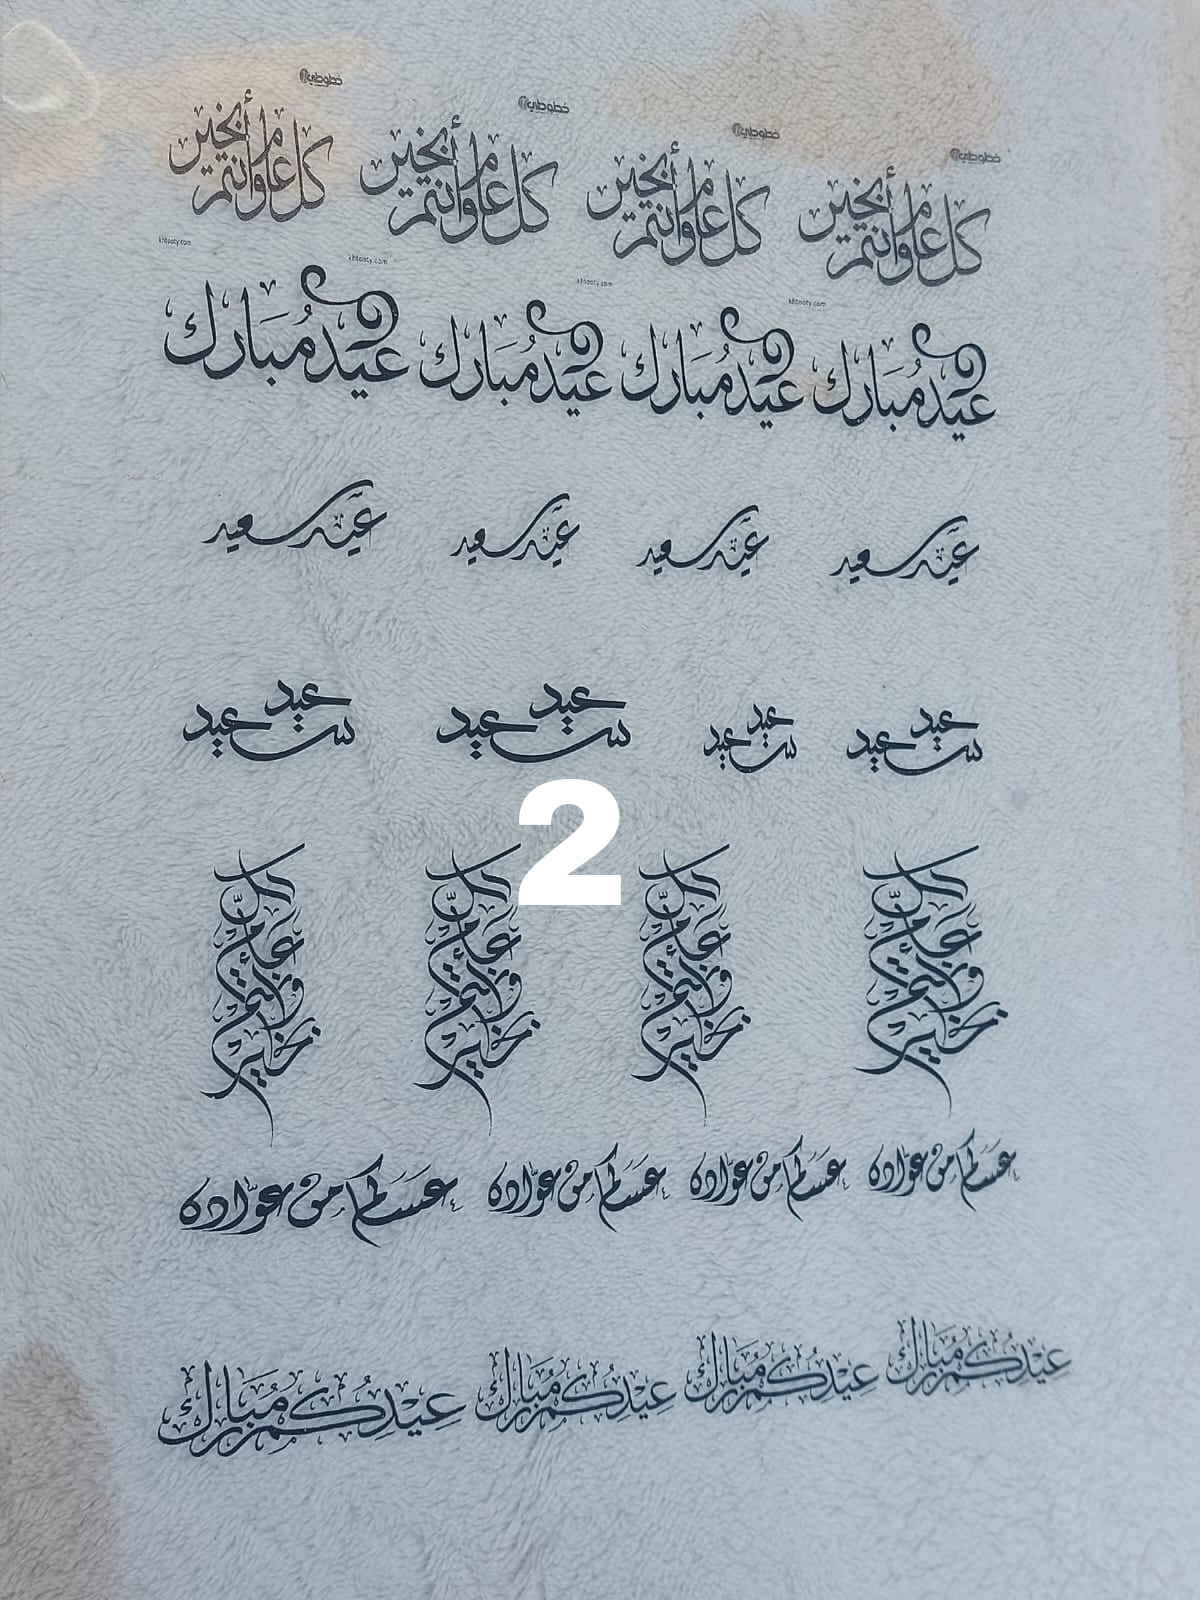 خطوطي خطوطي خطوطي خطوطي
كل عام وأنتم بخير كل عام وأنتم بخير كل عام وأنتم بخير كل عام وأنتم بخير
khtooty.com khtooty.com khtooty.com khtooty.com
عيد مُبارك عيد مُبارك عيد مُبارك عيد مُبارك
عيد سعيد عيد سعيد عيد سعيد عيد سعيد
عيد سعيد عيد سعيد عيد سعيد عيد سعيد
2
كل عام وأنتم بخير كل عام وأنتم بخير كل عام وأنتم بخير كل عام وأنتم بخير
عساكم من عوّاده عساكم من عوّاده عساكم من عوّاده عساكم من عوّاده
عيدكم مُبارك عيدكم مُبارك عيدكم مُبارك عيدكم مُبارك